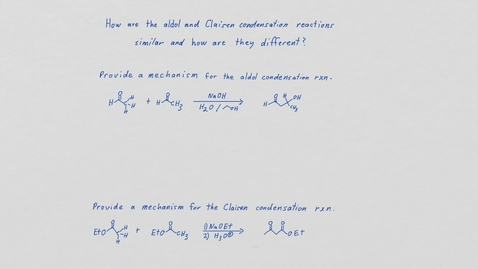 How are the aldol and Claisen condensation reactions
similar and how are they different?
Provide a mechanism for the aldol condensation rxn.
H O H H H + H O CH3 NaOH H2O / OH H O H OH CH3
Provide a mechanism for the Claisen condensation rxn.
EtO O H H H + EtO O CH3 1) NaOEt 2) H3O⊕ O O OEt